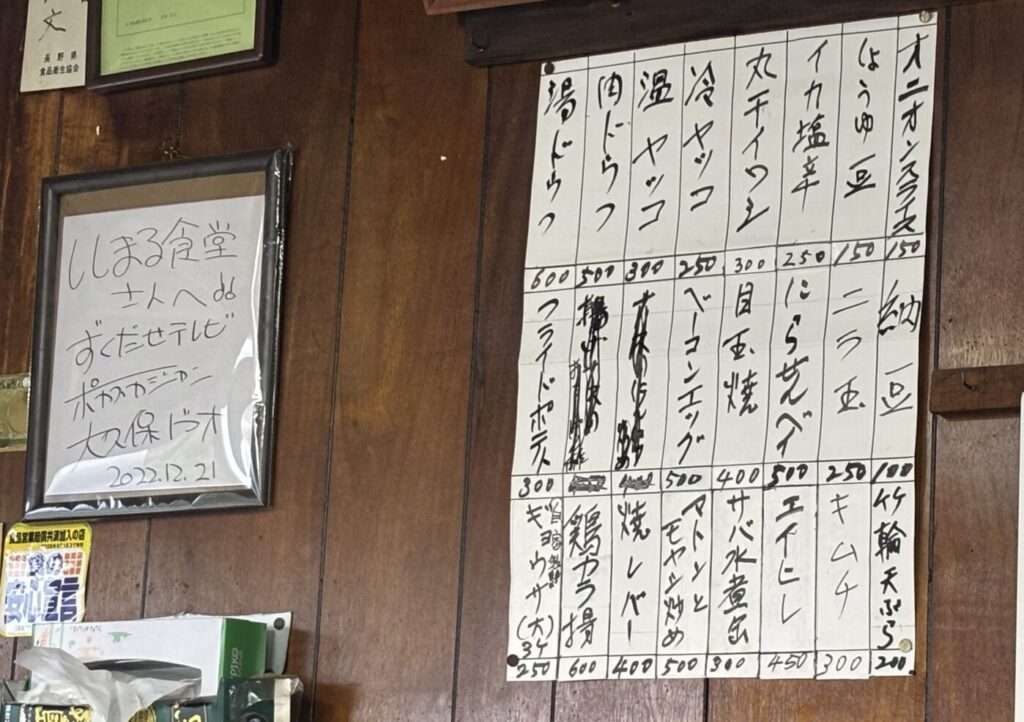 文
長野県
食品衛生協会
ししまる食堂
さんへ
ずくだせテレビ
ポカスカジャン
大久保ドオ
2022.12.21
食品営業賠償共済加入の店
オニオンスライス
150
しょうゆ豆
150
イカ塩辛
250
丸干イワシ
300
冷ヤッコ
250
温ヤッコ
300
肉ドウフ
500
湯ドウフ
600
納豆
100
ニラ玉
250
にらせんべイ
500
目玉焼
400
ベーコンエッグ
500
フライドポテト
300
竹輪天ぷら
200
キムチ
300
エイヒレ
450
サバ水煮缶
300
マトンと
モヤシ炒め
500
焼レバー
400
鶏カラ揚
600
自家製
ギョウザ(大)
3ケ
250